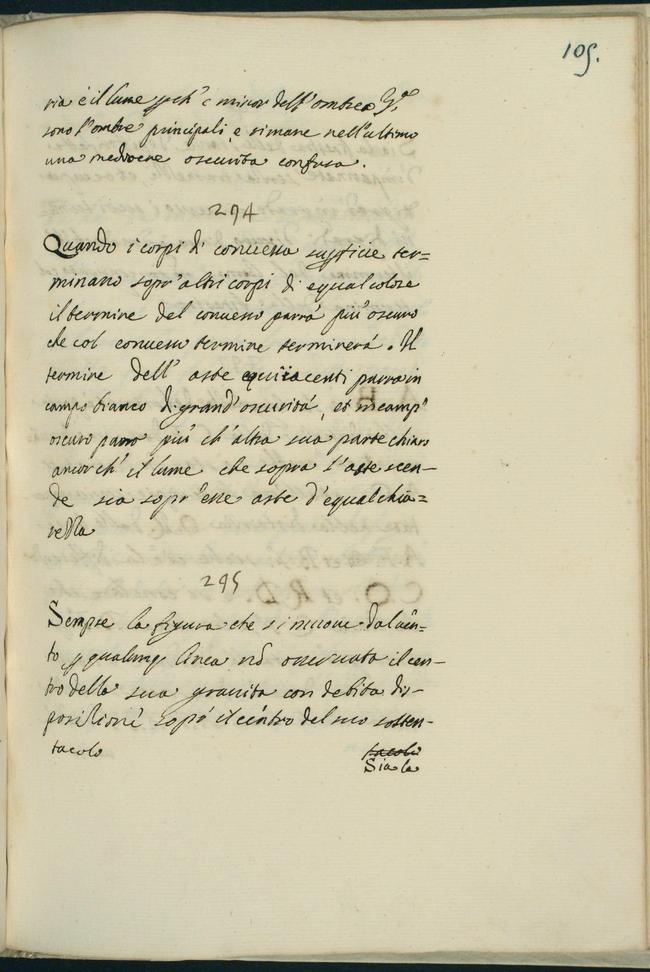 105.
ria è il lume ch' è minor dell'ombra
sono l'ombre principali, e rimane nell'ultimo
una mediocre oscurita confusa.
294
Quando i corpi di convessa superficie ter=
minano sopr'altri corpi di equal colore
il termine del convesso parrà più oscuro
che col convesso termine terminerà. Il
termine dell' aste equiiacenti parra in
campo bianco di grand' oscurità, et in camp'
oscuro parrà più ch' altra sua parte chiaro
ancorch' il lume che sopra l'aste scen-
de sia sopr'esse aste d'equal chia=
rezza
295
Sempre la figura che si muove dal vēn-
to p qualunq linea nō osservata il cen-
tro della sua gravita con debita dis-
posizione sopra il centro del suo sosten-
tacolo
tacolo
Sia la